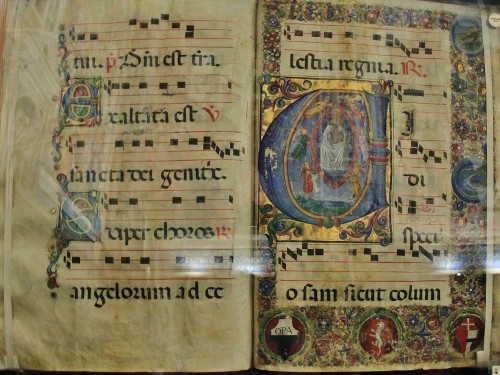 tui. p̃ Dñi est t̃ra.
Exaltata est V
sancta dei genitx̃.
Super choros R
angelorum ad ce
lestia regna. R.
VI
di
speci
osam sicut colum
OPA